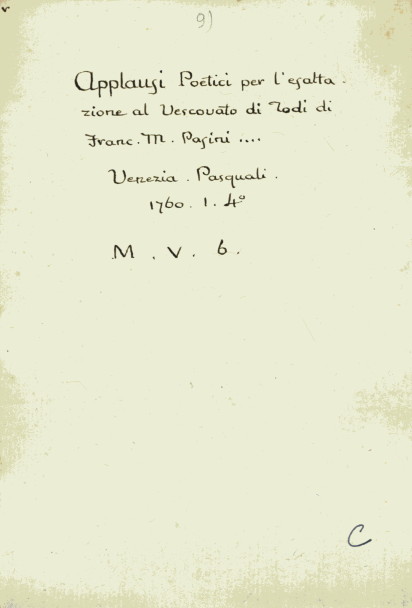 9)
Applausi Poetici per l'esalta-
zione al Vescovato di Todi di
Franc. M. Pasini ....
Venezia. Pasquali.
1760. 1. 4º
M. V. 6.
C